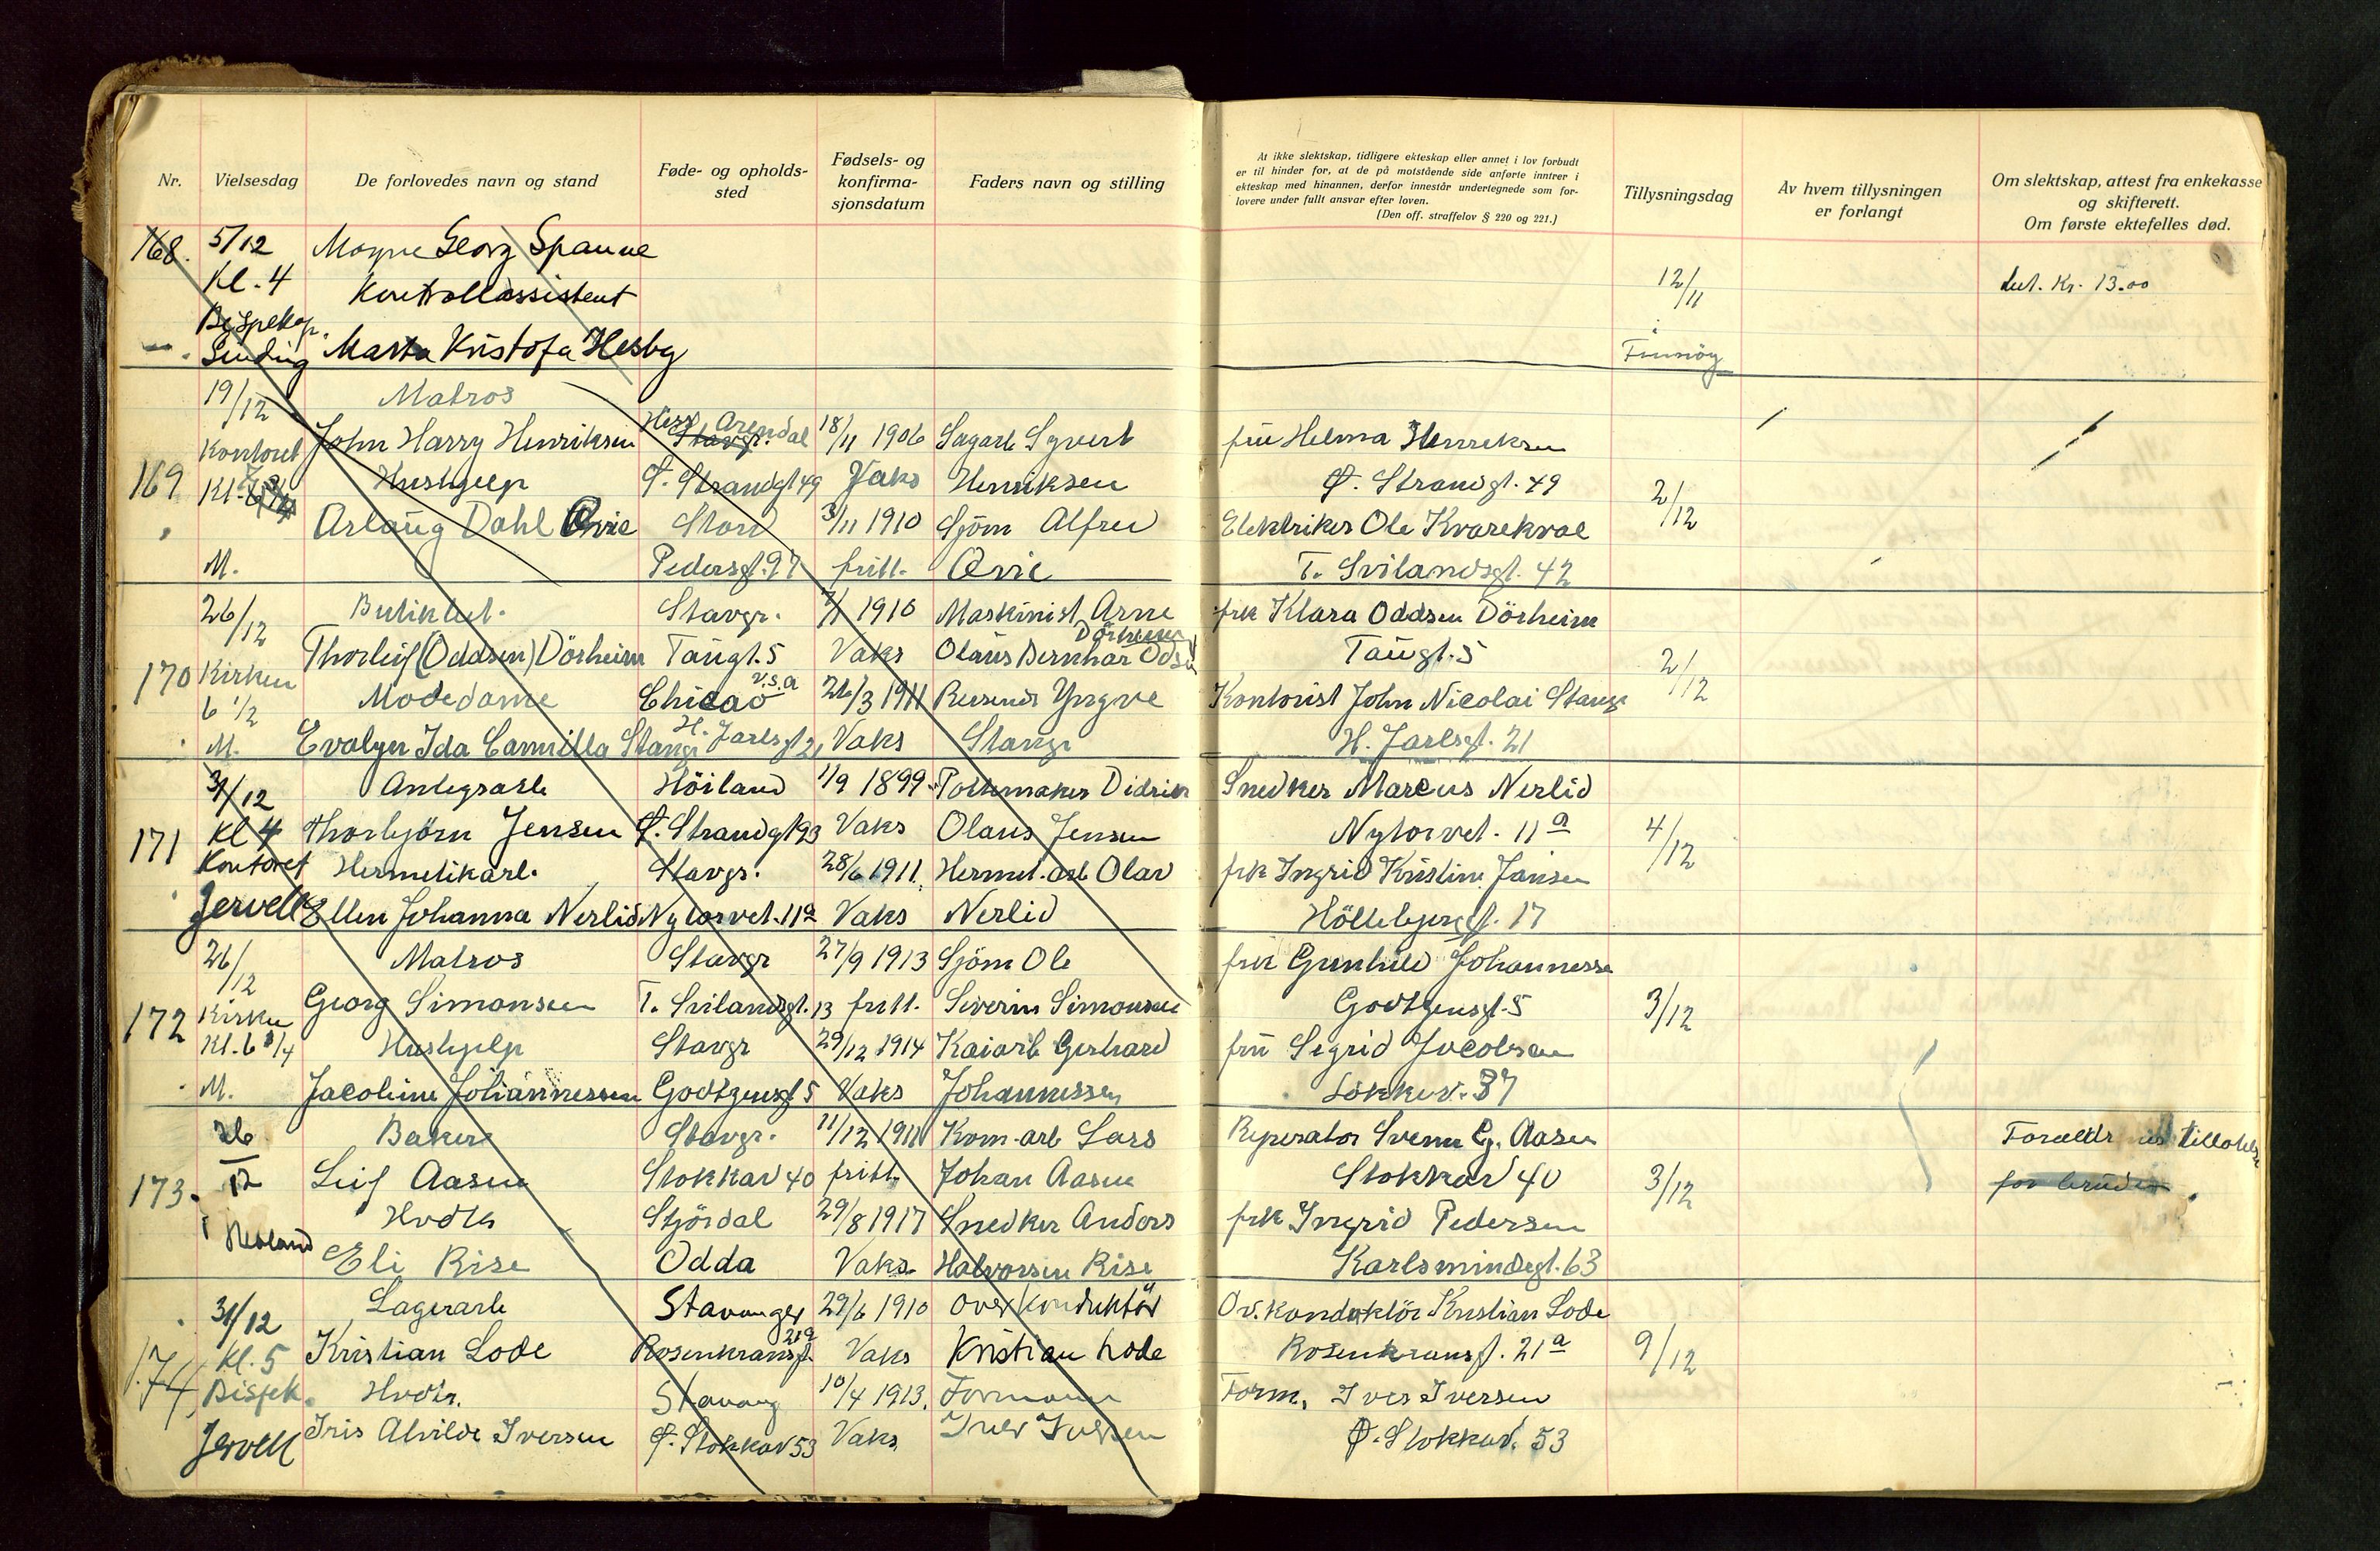 Nr.
Vielsesdag
De forlovedes navn og stand
Føde- og opholds-
sted
Fødsels- og
konfirma-
sjonsdatum
Faders navn og stilling
At ikke slektskap, tidligere ekteskap eller annet i lov forbudt
er til hinder for, at de på motstående side anførte inntrer i
ekteskap med hinannen, derfor innestår undertegnede som for-
lovere under fullt ansvar efter loven.
(Den off. straffelov § 220 og 221.)
Tillysningsdag
Av hvem tillysningen
er forlangt
Om slektskap, attest fra enkekasse
og skifterett.
Om første ektefelles død.
168. 5/12 Magne Georg Spanne
Kl. 4 Kontrollassistent 12/11 Kr. 13.00
Bispekap.
Sinding Marta Kristofa Hesby Finnöy
19/12 Matros
Kontoret John Harry Henriksen Arendal 18/11 1906 Sagarb Syvert fru Helma Henriksen
169 Kl. Hushjelp Ø. Strandgt 49 Vaks Henriksen Ø. Strandgt. 49 2/12
Aslaug Dahl Qvie Stord 3/11 1910 Sjöm Alfred Elektriker Ole Kvarekval
M. Pedersgt. 97 fritt. Qvie T. Svilandsgt. 42
26/12 Butikbet. Stavgr. 1910 Maskinist Arne frk Klara Oddsen Dörheim
Thorleif (Oddsen) Dörheim Taugt. 5 Vaks Olaus Bernhar Taugt. 5
170 Kirken Modedame Chicao U.S.A 26/3 1911 Reisende Yngve Kontorist John Nicolai Stange 2/12
6 1/2
M. Evalyn Ida Camilla Stange H. Jarlsgt 21 Vaks Stange H. Jarlsgt. 21
31/12 Anlegsarb Höiland 1/9 1899 Pottemaker Didrik Snedker Marcus Nerlid
171 Kl 4 Thorbjörn Jensen Ø. Strandgt 93 Vaks Olaus Jensen Nytorvet. 11a 4/12
Kontoret Hermetikarb. Stavgr. 28/6 1911. Hermet. arb Olav frk Ingrid Kristine Jansen
Jervell Ellen Johanna Nerlid Nytorvet. 11a Vaks Nerlid 17
26/12 Matros Stavgr 27/9 1913 Sjöm Ole frk Gunhild Johannessen
172 Kirken Georg Simonsen T. Svilandsgt. 13 fritt. Severin Simonsen Godtzensgt. 5 3/12
Kl. 6 3/4 Hushjelp Stavgr 29/12 1914 Kaiarb Gerhard fru Sigrid Jacobsen
M. Jacobine Johannessen Godtzensgt 5 Vaks Johannessen Lökkev. 37
26/12 Baker Stavgr. 11/12 1911 Kom. arb Lars Reperatör Svenn G. Aasen
173. Leif Aasen Stokkav 40 fritt. Johan Aasen Stokkav 40 3/12
Hvdtr Stjördal 29/8 1917 Snedker Anders frk Ingrid Pedersen
Hetland Eli Rise Odda Vaks Halvorsen Rise Karlsmindegt. 63
31/12 Lagerarb Stavanger 29/6 1910 Overkonduktör Ov. konduktör Kristian Lode
174 Kl. 5 Kristian Lode Rosenkransgt. 21a Vaks Kristian Lode Rosenkransgt. 21a 9/12
Bispek. Hvdtr. Stavang 10/4 1913. Formann Form. Iver Iversen
Jervell Iris Alvilde Iversen Ø. Stokkav 53 Vaks. Iver Iversen Ø. Stokkav. 53